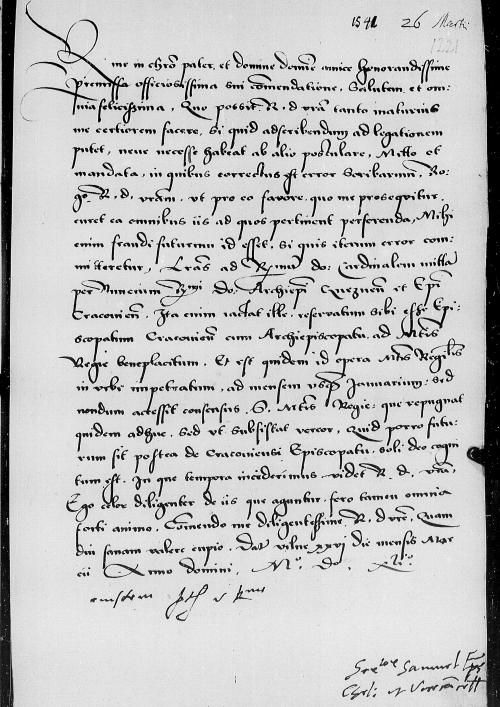 1541 26 Martii
1221
me in chro pater, et domine domine amice honorandissime
premissa officiosissima sui comendatione, Salutem et om-
nia felicissima, Quo possit R. d. vra tanto maturius
me certiorem facere, Si quid adscribendum ad legationem
putet, neve necesse habeat ab alio postulare, Mitto et
mandata, in quibus correctus est error Scribarum, Ro-
go R. d. vram. vt pro eo favore, quo me prosequitur,
curet ea omnibus iis ad quos pertinent perferenda, Mihi
enim fraudi futurum id esset, Si quis iterum error com-
mitteretur, Lras ad do: Cardinalem mitto
per Nuncium Do. Archiepi Gneznen et Epi
Cracovien. Ita enim iactat ille, reservatum sibi esse Epi-
scopatum Cracovien cum Archiepiscopatu, ad Mtis
Regie beneplacitum, Et est quidem id opera Mtis Regie
in vrbe impetratum, ad mensem Januarium: Sed
nondum accessit consensus S. Mtis Regie: que repugnat
quidem adhuc, Sed vt subsistat vereor, Quid porro futu-
rum sit postea de Cracoviensi Episcopatu, soli deo cogni
tum est. In que tempora inciderimus, videt R. d. vra.
Ego celer diligenter de iis que aguntur, fero tamen omnia
forti animo, Comendo me diligentissime R. d. vre, Quam
diu sanam valere cupio, Dat vilne xxvi die mensis Mar
cii Anno domini, Mo. Do. xli.
eiusdem
Samuel Eps